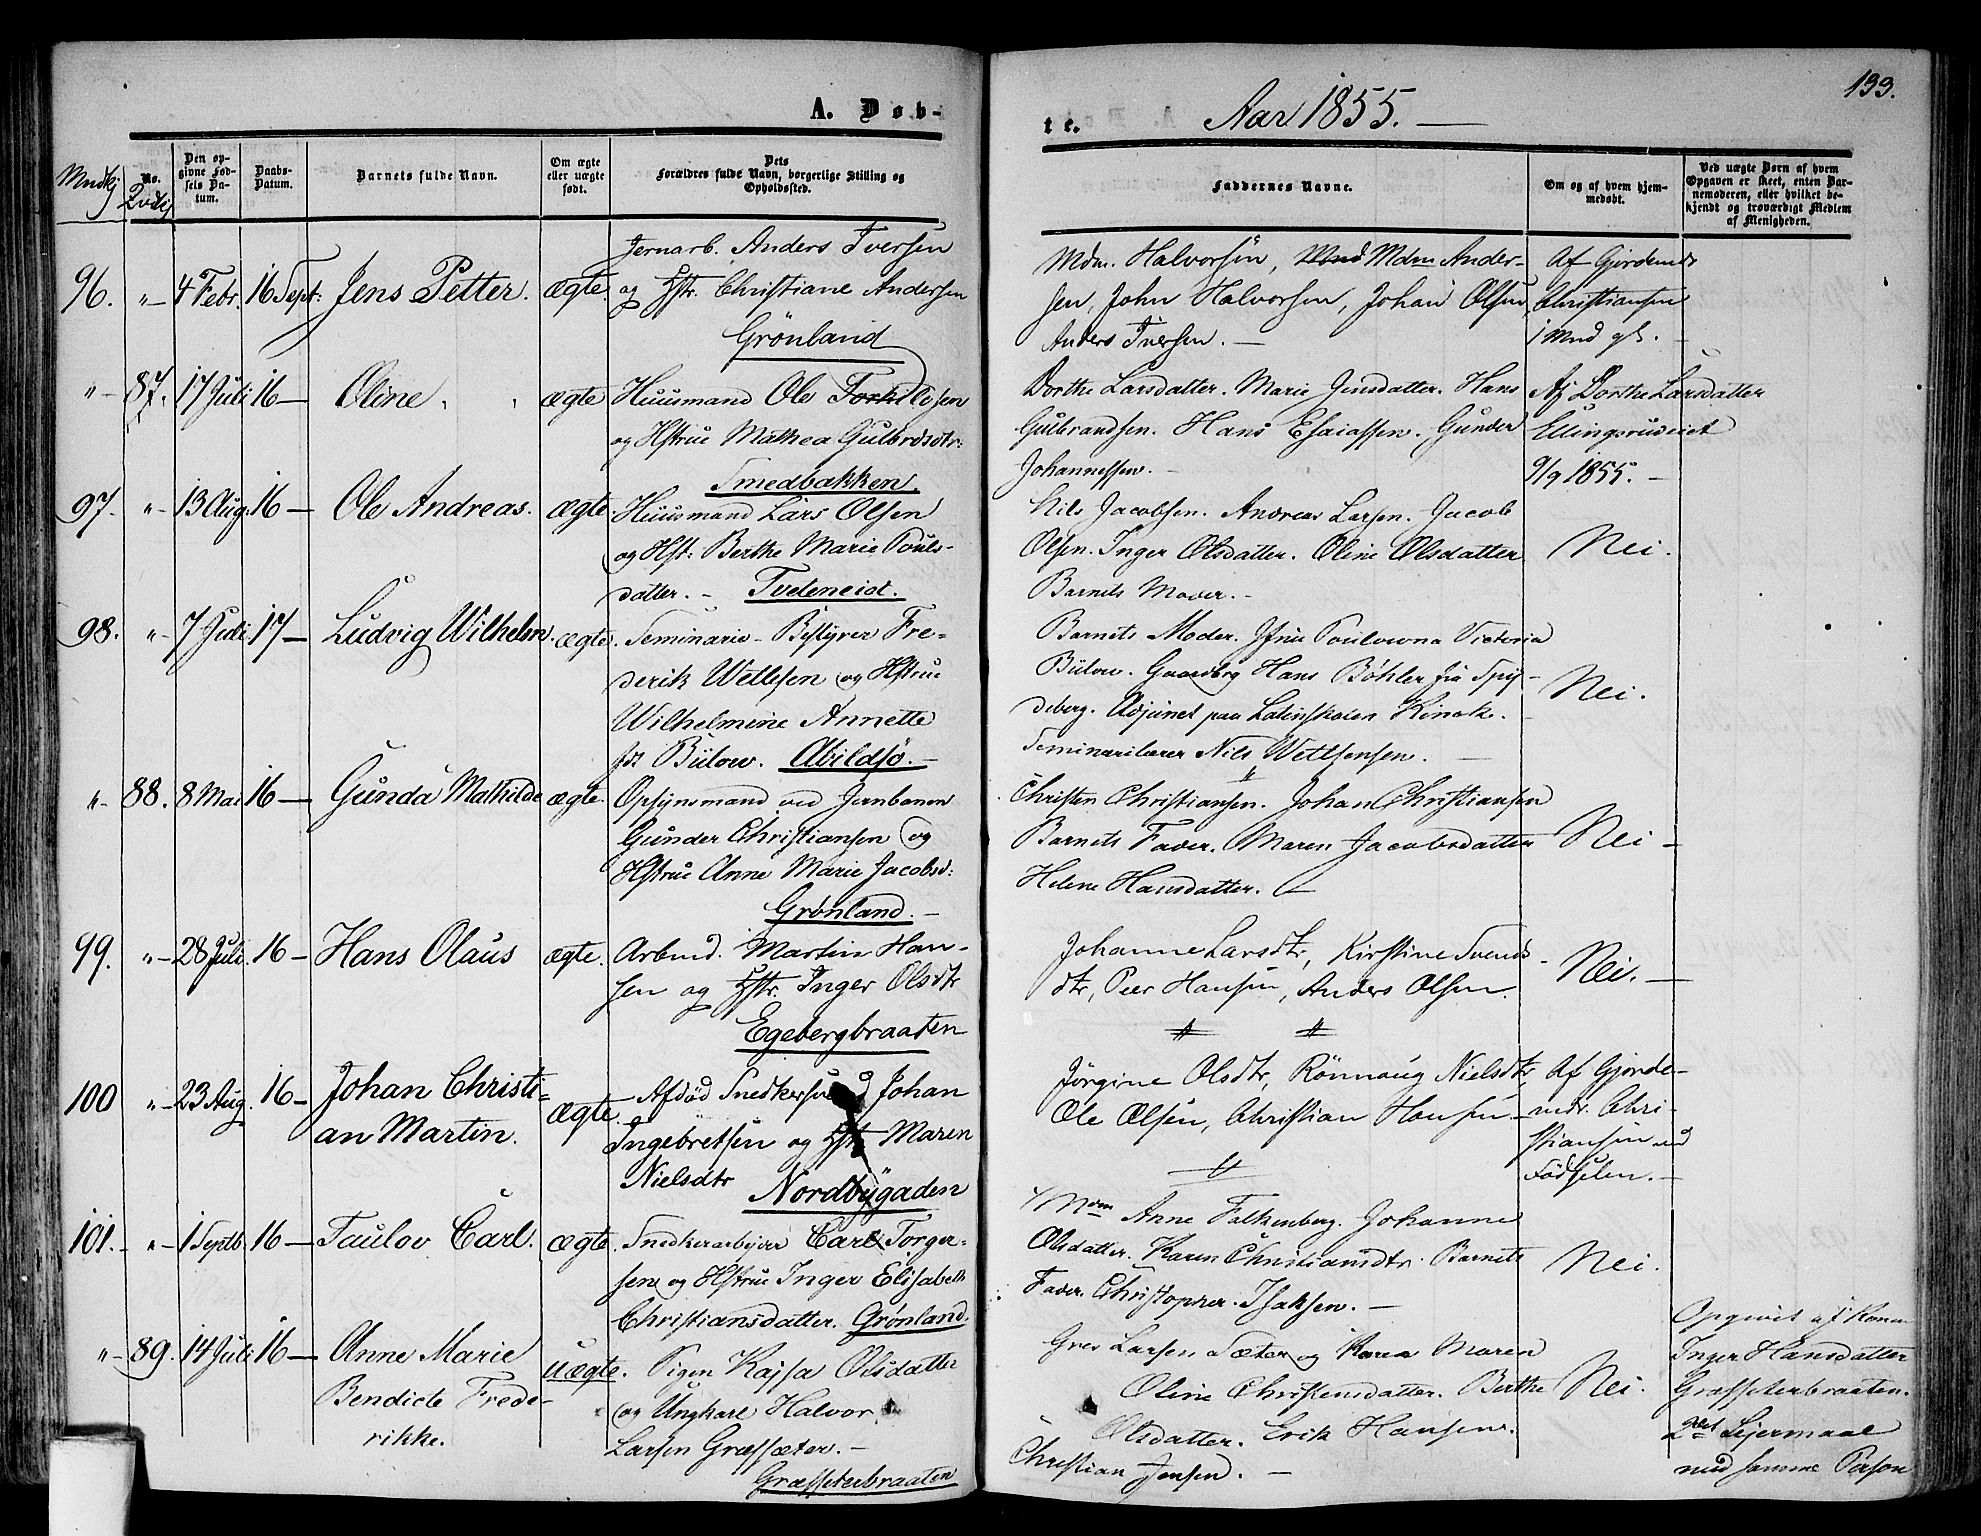 A. Døb-
Mndkj No. Qvdkj
Den opgivne Fødsels Datum.
Daabs-Datum.
Barnets fulde Navn.
Om ægte eller uægte født.
Dets Forældres fulde Navn, borgerlige Stilling og Opholdssted.
96. „ 4 Febr. 16 Sept: Jens Petter. ægte.
Jernarb. Anders Iversen
og Hstr. Christiane Andersen
Grönland
„ 87. 17 Juli 16 — Oline ægte
Huusmand Ole Torkildsen
og Hstrue Mathea Gulbrdsdtr:
Smedbakken.
97. „ 13 Aug. 16 — Ole Andreas. ægte
Huusmand Lars Olsen
og Hst: Berthe Marie Pouls-
datter. — Tvedeneiet.
98. „ 7 Juli 17 — Ludvig Wilhelm. ægte.
Seminarie-Bestyrer Fre-
derik Wetlesen og Hstrue
Wilhelmine Annette
fdt Bülow. Abildsø. —
„ 88. 8 Mai 16 — Gunda Mathilde ægte
Opsynsmand ved Jernbanen
Gunder Christiansen og
Hstrue Anne Marie Jacobsd:
Grønland. —
99. „ 28 Juli 16 — Hans Olaus ægte.
Arbmd. Martin Han-
sen og Hstr. Inger Olsdtr
Egebergbraaten
100 „ 23 Aug. 16 — Johan Christi-
an Martin. ægte.
Afdöd Snedkersvend Johan
Ingebretsen og Hstr Maren
Nielsdtr Nordbygaden
101. „ 1 Septb. 16 — Taulov Carl. ægte.
Snedkerarbeider Carl Torger-
sen og Hstrue Inger Elisabeth
Christiansdatter. Grønland.
„ 89. 14 Juli 16 — Anne Marie
Bendicte Frede-
rikke. uægte.
Pigen Kajsa Olsdatter
og Ungkarl Halvor
Larsen Græssæter. —
Græsseterbraaten
te. Aar 1855. —
133.
Faddernes Navne.
Om og af hvem hjemmedøbt.
Ved uægte Børn af hvem Opgaven er skeet, enten Barnemoderen, eller hvilket bekjendt og troværdigt Medlem af Menigheden.
Mdm. Halvorsen, Mdm Ander-
sen, John Halvorsen, Johan Olsen,
Anders Iversen. —
Af Gjordemdr
Christiansen
1 Mnd gl. —
Dorthe Larsdatter. Marie Jensdatter. Hans
Gulbrandsen. Hans Esaiassen. Gunder
Johannessen. —
Af Dorthe Larsdatter
Ellingsrudeiet
9/9 1855. —
Nils Jacobsen. Andreas Larsen. Jacob
Olsen. Inger Olsdatter. Oline Olsdatter
Barnets Moder. —
Nei.
Barnets Moder. Ifru Poulowna Victoria
Bülow. Gaardbrg Hans Bøhler fra Spy-
deberg. Adjunct paa Latinskolen Kinck.
Seminarilærer Nils Wetlesen. —
Nei.
Christen Christiansen. Johan Christiansen
Barnets Fader. Maren Jacobsdatter
Helene Hansdatter. —
Nei —
Johanne Larsdtr, Kirstine Svends-
dtr, Peer Hansen, Anders Olsen.
Nei. —
Jörgine Olsdtr, Rönnaug Nielsdtr,
Ole Olsen, Christian Hansen. —
Af Gjorde-
mdr. Chri-
stiansen ved
Födselen. —
Mdm Anne Falkenberg. Johanne
Olsdatter. Karen Christiansdtr. Barnets
Fader. Christopher Isaksen. —
Nei.
Lars Larsen Sæter og Maren
Oline Christensdatter. Berthe
Olsdatter. Erik Hansen.
Christian Jensen. —
Nei.
Opgivet af Konen
Inger Hansdatter
Græsseterbraaten.
2det Leiermaal
med samme Person